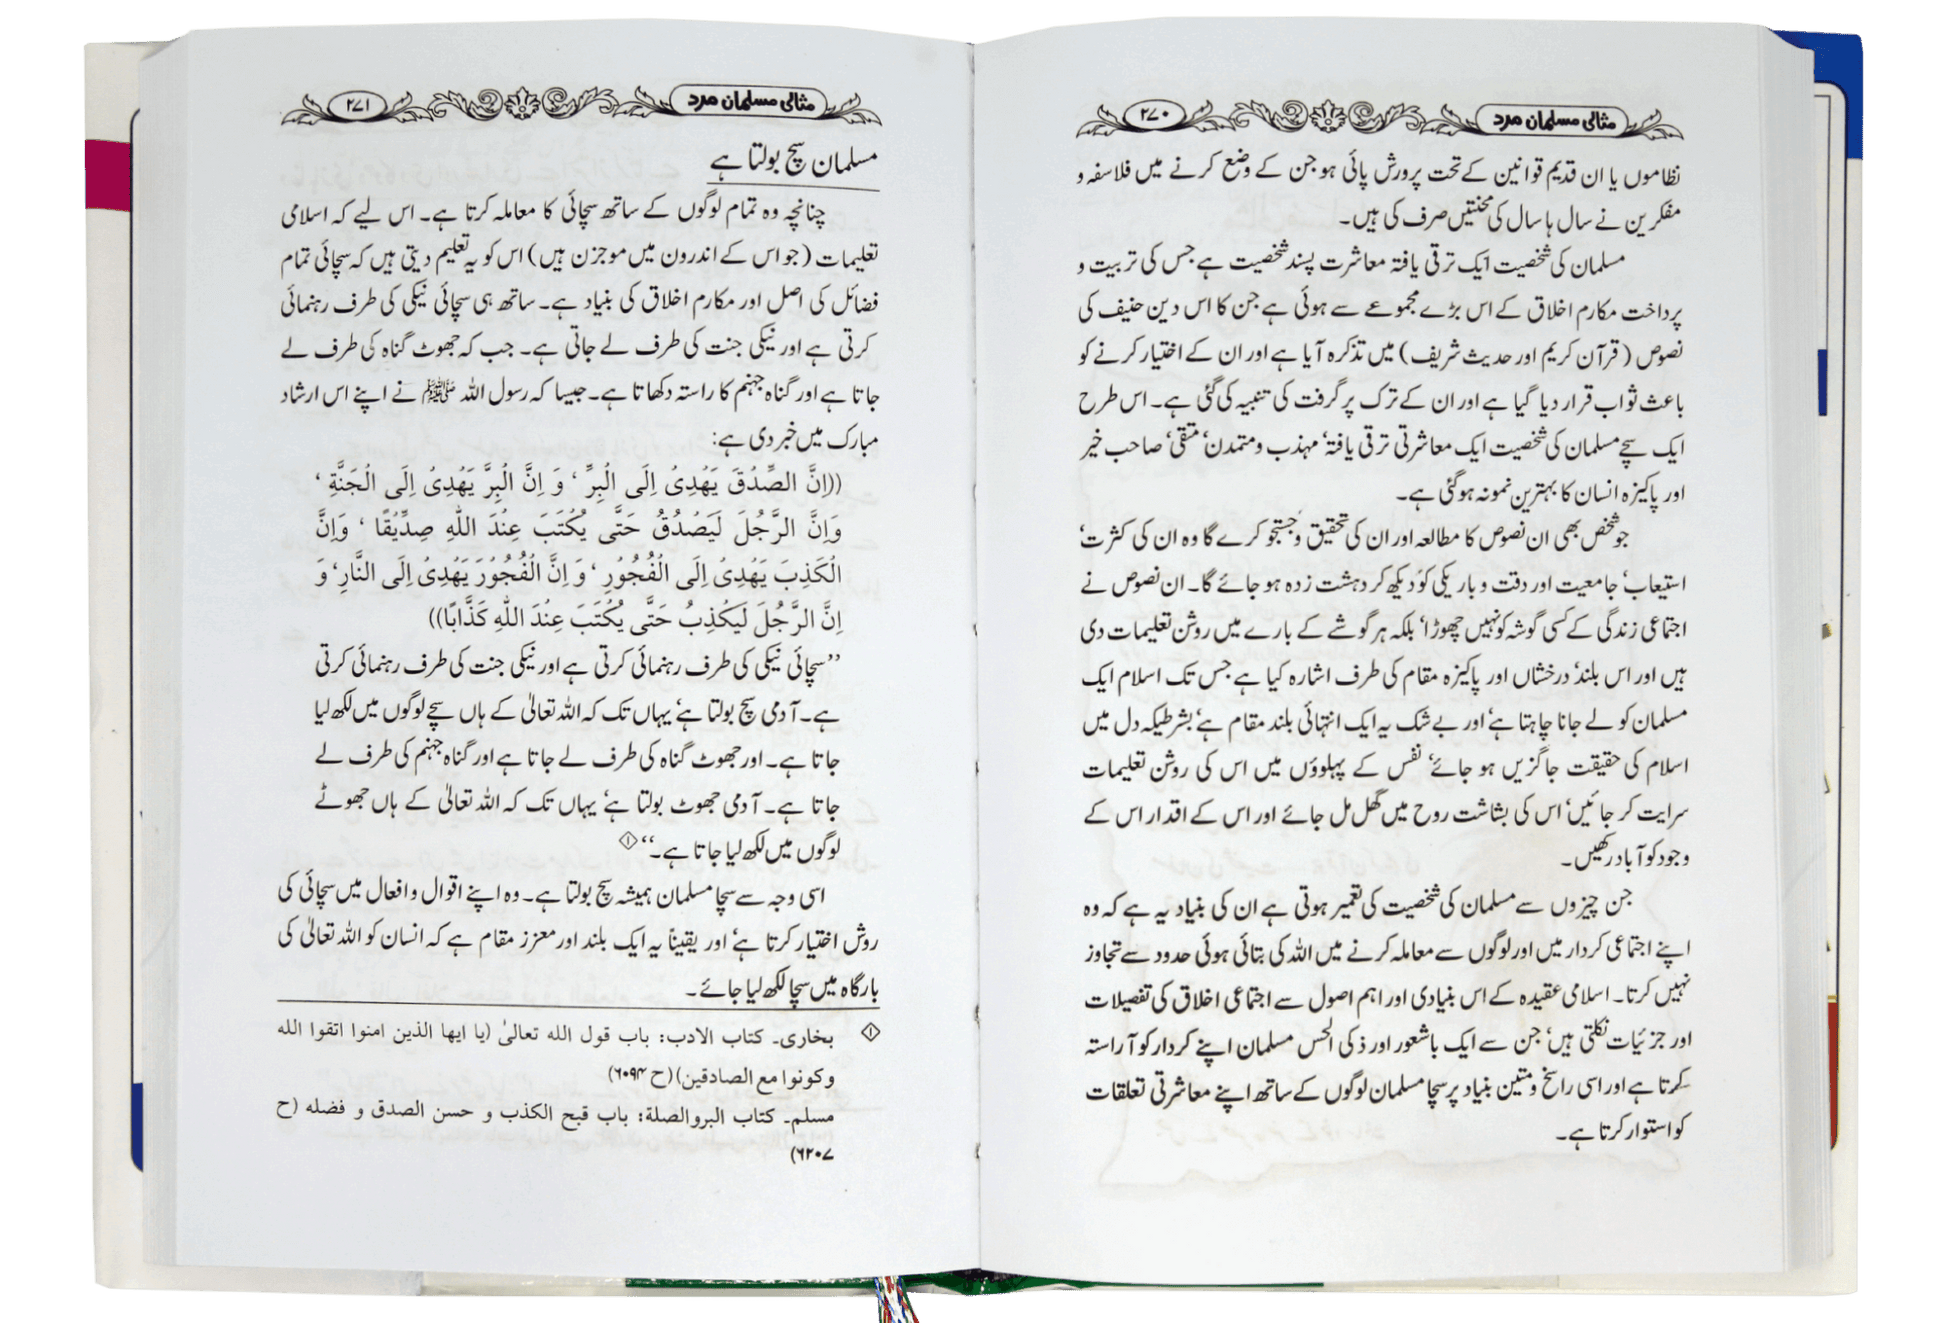 مثالی مسلمان مرد
۲۷۰
نظاموں یا ان قدیم قوانین کے تحت پرورش پائی ہو جن کے وضع کرنے میں فلاسفہ و
مفکرین نے سال ہا سال کی محنتیں صرف کی ہیں۔
مسلمان کی شخصیت ایک ترقی یافتہ معاشرت پسند شخصیت ہے جس کی تربیت و
پرداخت مکارم اخلاق کے اس بڑے مجموعے سے ہوئی ہے جن کا اس دین حنیف کی
نصوص (قرآن کریم اور حدیث شریف) میں تذکرہ آیا ہے اور ان کے اختیار کرنے کو
باعث ثواب قرار دیا گیا ہے اور ان کے ترک پر گرفت کی تنبیہ کی گئی ہے۔ اس طرح
ایک سچے مسلمان کی شخصیت ایک معاشرتی ترقی یافتہ‘ مہذب و متمدن‘ متقی‘ صاحب خیر
اور پاکیزہ انسان کا بہترین نمونہ ہو گئی ہے۔
جو شخص بھی ان نصوص کا مطالعہ اور ان کی تحقیق و جستجو کرے گا وہ ان کی کثرت‘
استیعاب‘ جامعیت اور دقت و باریکی کو دیکھ کر دہشت زدہ ہو جائے گا۔ ان نصوص نے
اجتماعی زندگی کے کسی گوشہ کو نہیں چھوڑا‘ بلکہ ہر گوشے کے بارے میں روشن تعلیمات دی
ہیں اور اس بلند‘ درخشاں اور پاکیزہ مقام کی طرف اشارہ کیا ہے جس تک اسلام ایک
مسلمان کو لے جانا چاہتا ہے‘ اور بے شک یہ ایک انتہائی بلند مقام ہے‘ بشرطیکہ دل میں
اسلام کی حقیقت جاگزیں ہو جائے‘ نفس کے پہلوؤں میں اس کی روشن تعلیمات
سرایت کر جائیں‘ اس کی بشاشت روح میں گھل مل جائے اور اس کے اقدار اس کے
وجود کو آباد رکھیں۔
جن چیزوں سے مسلمان کی شخصیت کی تعمیر ہوتی ہے ان کی بنیاد یہ ہے کہ وہ
اپنے اجتماعی کردار میں اور لوگوں سے معاملہ کرنے میں اللہ کی بتائی ہوئی حدود سے تجاوز
نہیں کرتا۔ اسلامی عقیدہ کے اس بنیادی اور اہم اصول سے اجتماعی اخلاق کی تفصیلات
اور جزئیات نکلتی ہیں‘ جن سے ایک باشعور اور ذکی الحس مسلمان اپنے کردار کو آراستہ
کرتا ہے اور اسی راسخ و متین بنیاد پر سچا مسلمان لوگوں کے ساتھ اپنے معاشرتی تعلقات
کو استوار کرتا ہے۔
مثالی مسلمان مرد
۲۷۱
مسلمان سچ بولتا ہے
چنانچہ وہ تمام لوگوں کے ساتھ سچائی کا معاملہ کرتا ہے۔ اس لیے کہ اسلامی
تعلیمات (جو اس کے اندرون میں موجزن ہیں) اس کو یہ تعلیم دیتی ہیں کہ سچائی تمام
فضائل کی اصل اور مکارم اخلاق کی بنیاد ہے۔ ساتھ ہی سچائی نیکی کی طرف رہنمائی
کرتی ہے اور نیکی جنت کی طرف لے جاتی ہے۔ جب کہ جھوٹ گناہ کی طرف لے
جاتا ہے اور گناہ جہنم کا راستہ دکھاتا ہے۔ جیسا کہ رسول اللہ ﷺ نے اپنے اس ارشاد
مبارک میں خبر دی ہے:
((اِنَّ الصِّدْقَ یَهْدِیْ اِلَی الْبِرِّ ‘ وَ اِنَّ الْبِرَّ یَهْدِیْ اِلَی الْجَنَّةِ ‘
وَاِنَّ الرَّجُلَ لَیَصْدُقُ حَتّٰی یُکْتَبَ عِنْدَ اللّٰهِ صِدِّیْقًا ‘ وَاِنَّ
الْکَذِبَ یَهْدِیْ اِلَی الْفُجُوْرِ ‘ وَ اِنَّ الْفُجُوْرَ یَهْدِیْ اِلَی النَّارِ ‘ وَ
اِنَّ الرَّجُلَ لَیَکْذِبُ حَتّٰی یُکْتَبَ عِنْدَ اللّٰهِ کَذَّابًا))
’’سچائی نیکی کی طرف رہنمائی کرتی ہے اور نیکی جنت کی طرف رہنمائی کرتی
ہے۔ آدمی سچ بولتا ہے‘ یہاں تک کہ اللہ تعالیٰ کے ہاں سچے لوگوں میں لکھ لیا
جاتا ہے۔ اور جھوٹ گناہ کی طرف لے جاتا ہے اور گناہ جہنم کی طرف لے
جاتا ہے۔ آدمی جھوٹ بولتا ہے‘ یہاں تک کہ اللہ تعالیٰ کے ہاں جھوٹے
لوگوں میں لکھ لیا جاتا ہے۔‘‘ ۱
اسی وجہ سے سچا مسلمان ہمیشہ سچ بولتا ہے۔ وہ اپنے اقوال و افعال میں سچائی کی
روش اختیار کرتا ہے‘ اور یقیناً یہ ایک بلند اور معزز مقام ہے کہ انسان کو اللہ تعالیٰ کی
بارگاہ میں سچا لکھ لیا جائے۔
۱ بخاری۔ کتاب الادب: باب قول الله تعالیٰ (یا ایها الذین امنوا اتقوا الله
وکونوا مع الصادقین) (ح ۶۰۹۴)
مسلم۔ کتاب البر والصلة: باب قبح الکذب و حسن الصدق و فضله (ح
۶۲۰۷)